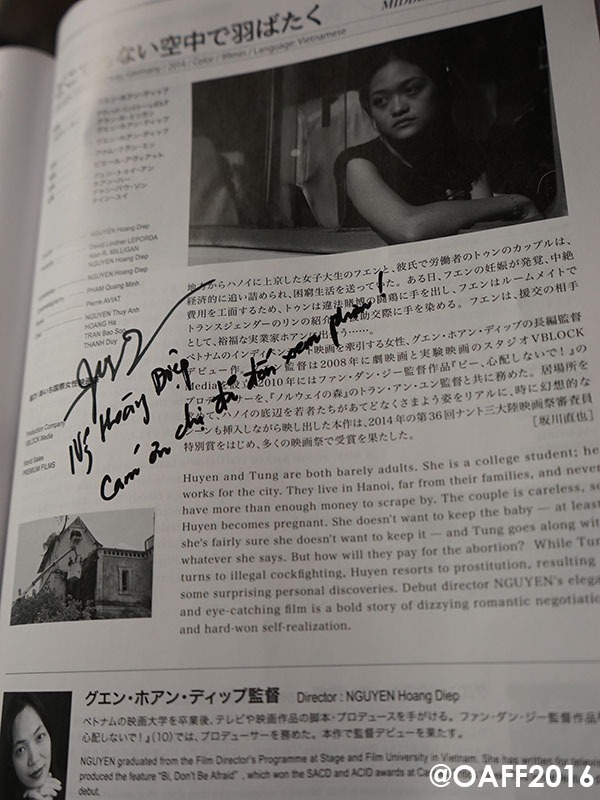 MIDDLE
ない空中で羽ばたく
Germany / 2014 / Color / 99min / Language: Vietnamese
グエン・ホアン・ディップ
NGUYEN Hoang Diep
David Lindner LEPORDA
Alan R. MILLIGAN
NGUYEN Hoang Diep
NGUYEN Hoang Diep
PHAM Quang Minh
Pierre AVIAT
NGUYEN Thuy Anh
HOANG Ha
TRAN Bao Son
THANH Duy
Production Company
VBLOCK Media
World Sales
PREMIUM FILMS
地方からハノイに上京した女子大生のフエンと、彼氏で労働者のトゥンのカップルは、
経済的に追い詰められ、困窮生活を送っていた。ある日、フエンの妊娠が発覚、中絶
費用を工面するため、トゥンは違法賭博の闘鶏に手を出し、フエンはルームメイトで
トランスジェンダーのリンの紹介で援助交際に手を染める。フエンは、援交の相手
として、裕福な実業家ホアンに出会う……。
ベトナムのインディペンデント映画を牽引する女性、グエン・ホアン・ディップの長編監督
デビュー作。 監督は2008年に劇映画と実験映画のスタジオVBLOCK
Mediaを設立、2010年にはファン・ダン・ジー監督作品『ビー、心配しないで!』の
プロデューサーを、『ノルウェイの森』のトラン・アン・ユン監督と共に務めた。居場所を
て、ハノイの底辺を若者たちがあてどなくさまよう姿をリアルに、時に幻想的な
シーンも挿入しながら映し出した本作は、2014年の第36回ナント三大陸映画祭審査員
特別賞をはじめ、多くの映画祭で受賞を果たした。 [坂川直也]
Ng Hoàng Điệp
Cảm ơn chị đã đến xem phim!
Huyen and Tung are both barely adults. She is a college student; he
works for the city. They live in Hanoi, far from their families, and never
have more than enough money to scrape by. The couple is careless, so
Huyen becomes pregnant. She doesn't want to keep the baby — at least
she's fairly sure she doesn't want to keep it — and Tung goes along with
whatever she says. But how will they pay for the abortion? While Tung
turns to illegal cockfighting, Huyen resorts to prostitution, resulting
some surprising personal discoveries. Debut director NGUYEN's elega
and eye-catching film is a bold story of dizzying romantic negotiation
and hard-won self-realization.
グエン・ホアン・ディップ監督 Director : NGUYEN Hoang Diep
ベトナムの映画大学を卒業後、テレビや映画作品の脚本・プロデュースを手がける。ファン・ダン・ジー監督作品
心配しないで!』(10)では、プロデューサーを務めた。本作で監督デビューを果たす。
NGUYEN graduated from the Film Director's Programme at Stage and Film University in Vietnam. She has written for television
produced the feature "Bi, Don't Be Afraid" , which won the SACD and ACID awards at Ca
debut.
@OAFF2016